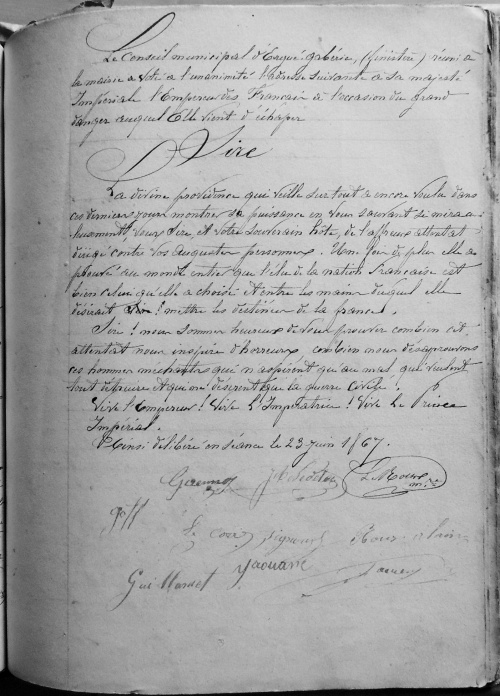 Le Conseil municipal d'Ergué-gabéric, (finistère) réuni à
la mairie a voté a l'unanimité l'adresse suivante a Sa majesté
Impériale l'Empereur des Francais à l'occasion du grand
danger auquel Elle vient d'échaper
Sire
La divine providence qui veille sur tout a encore voulu dans
ces derniers jours montrer sa puissance en vous sauvant si miracu-
leusement, vous Sire et votre souverain hôte, de l'affreux attentat
dirigé contre vos augustes personnes. Une fois de plus elle a
prouvé au monde entier que l'élu de la nation française est
bien celui qu'elle a choisi et entre les mains duquel elle
désirait mettre les destinées de la france.
Sire! nous sommes heureux de vous prouver combien cet
attentat nous inspire d'horreur, combien nous désaprouvons
ces hommes méchants qui n'aspirent qu'au mal, qui veulent
tout détruire et qui ne désirent que la guerre civile.
Vive l'Empereur! Vive l'Impératrice! Vive le Prince
Impérial.
Ainsi délibéré en séance le 23 juin 1867.
Le corr
Yaouanc